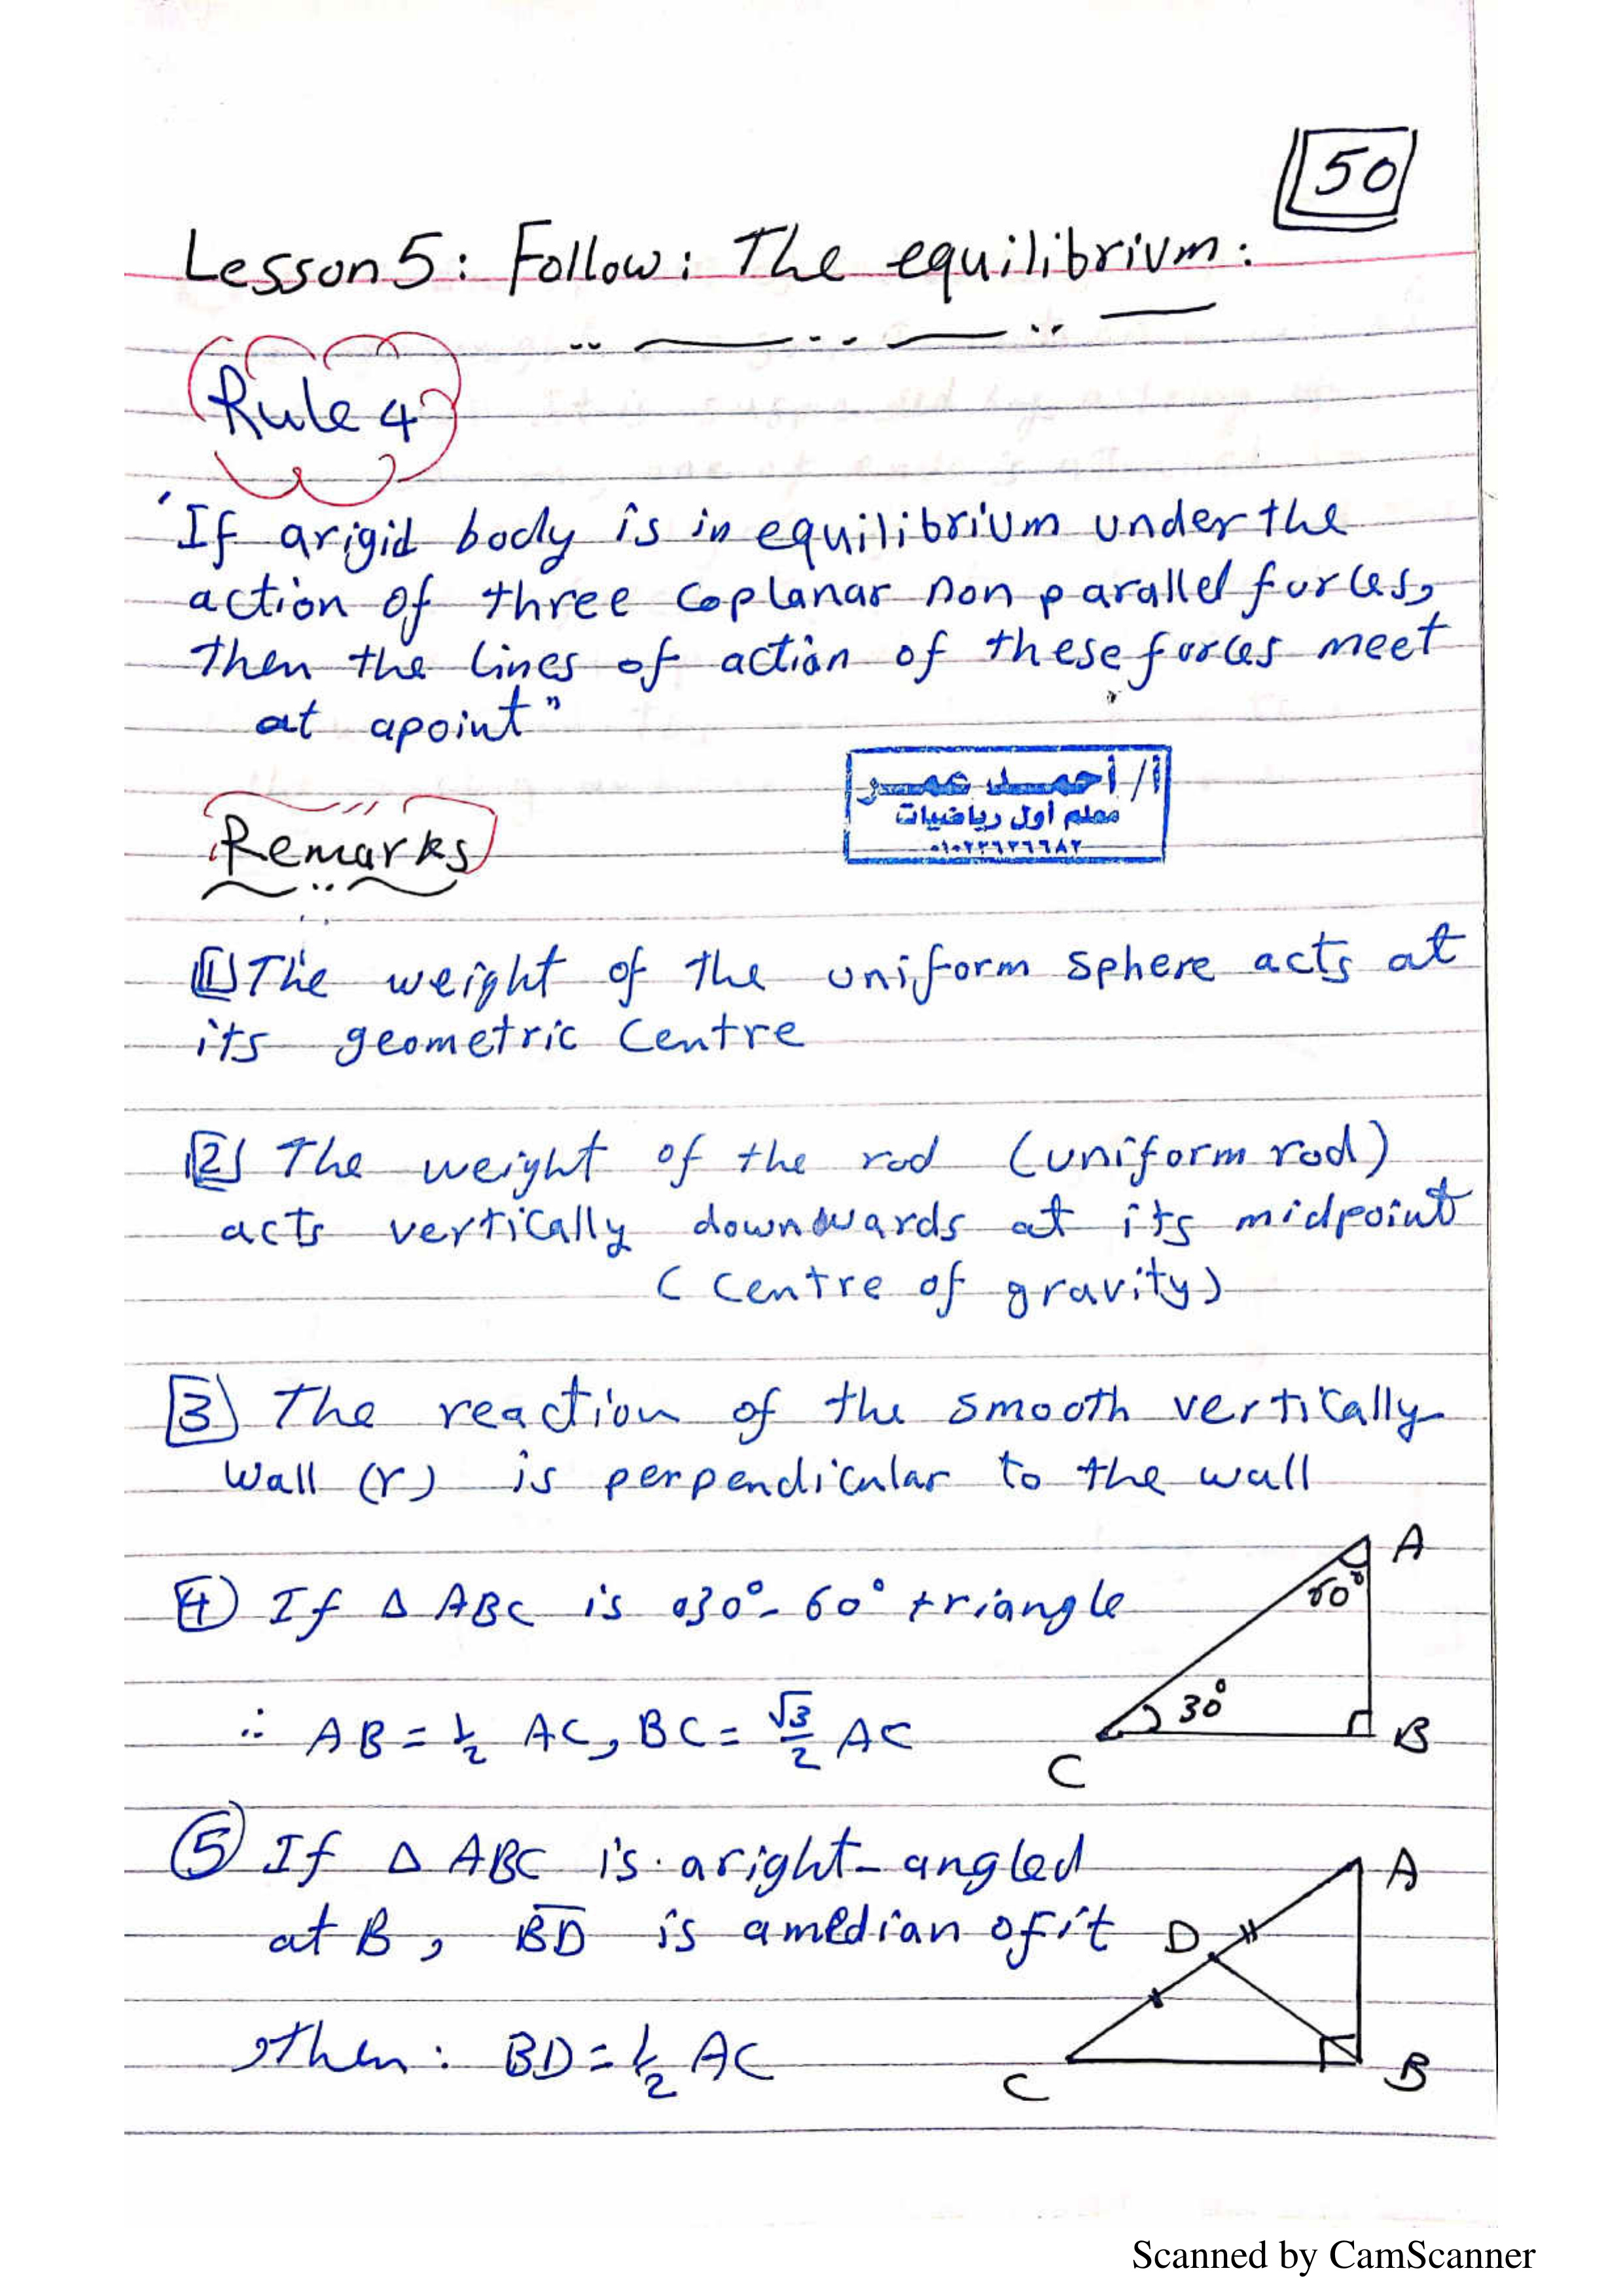 50
Lesson 5: Follow: The equilibrium:
Rule 4
"If arigid body is in equilibrium under the
action of three coplanar non parallel forces,
then the lines of action of these forces meet
at apoint"
أ/ أحمد عمر
معلم أول رياضيات
Remarks
[1] The weight of the uniform sphere acts at
its geometric Centre
[2] The weight of the rod (uniform rod)
acts vertically downwards at its midpoint
(Centre of gravity)
[3] The reaction of the smooth vertically
wall (r) is perpendicular to the wall
A
60°
[4] If Δ ABC is a 30°- 60° triangle
30°
∴ AB = 1/2 AC, BC = √3/2 AC
B
C
(5) If Δ ABC is aright-angled
A
at B, BD is amedian of it
D
then: BD = 1/2 AC
C
B
Scanned by CamScanner